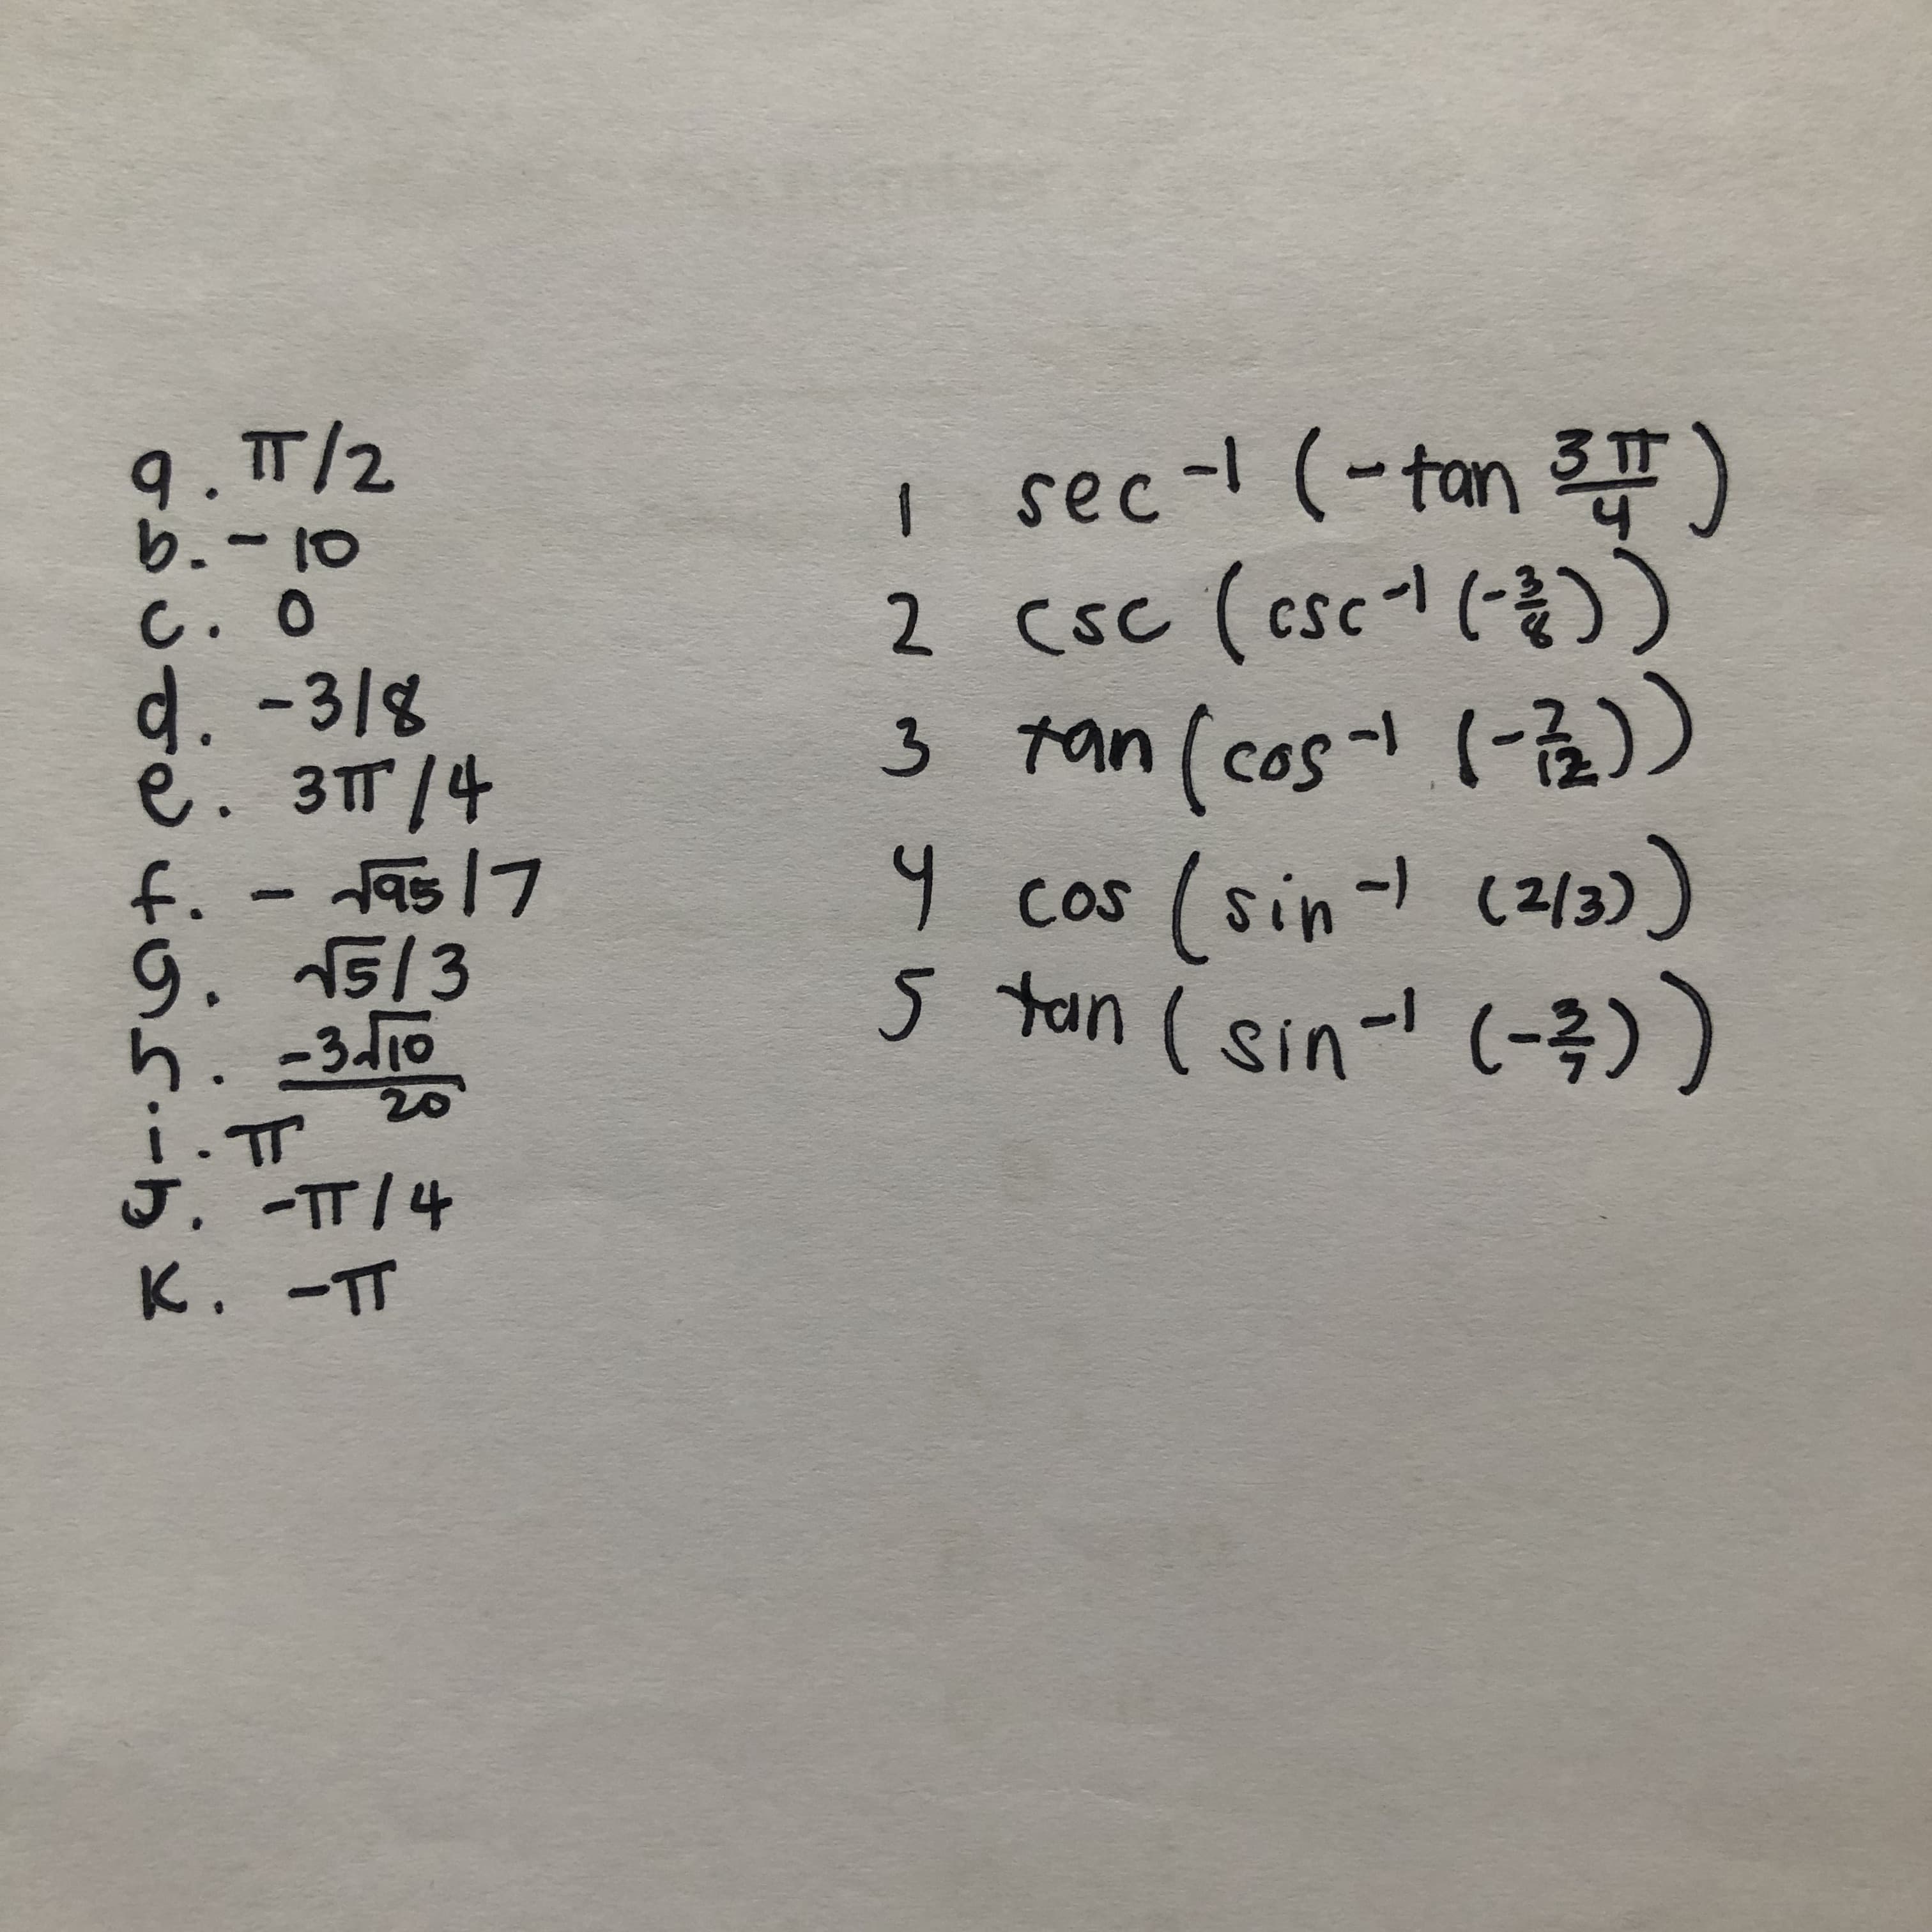 a. π/2
b. - 10
c. 0
d. -3/8
e. 3π/4
f. - √95/7
g. √5/3
h. -3√10/20
i. π
J. -π/4
K. -π
1 sec⁻¹ (-tan 3π/4)
2 csc (csc⁻¹ (-3/8))
3 tan (cos⁻¹ (-7/12))
4 cos (sin⁻¹ (2/3))
5 tan (sin⁻¹ (-3/7))